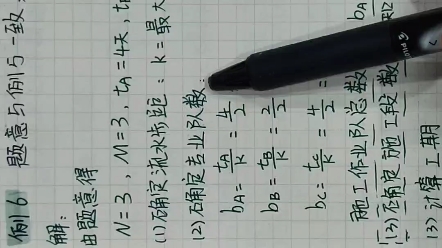 例6 题意与例5一致:
解:
由题意得
N=3, M=3, tA=4天, t
(1)确定流水步距: K=最大
(2)确定专业队数
bA= tA/K = 4/2
bB= tB/K = 2/2
bC= tC/K = 4/2 =
施工作业队总数 bA
(3)确定施工段数 和
(3)计算工期